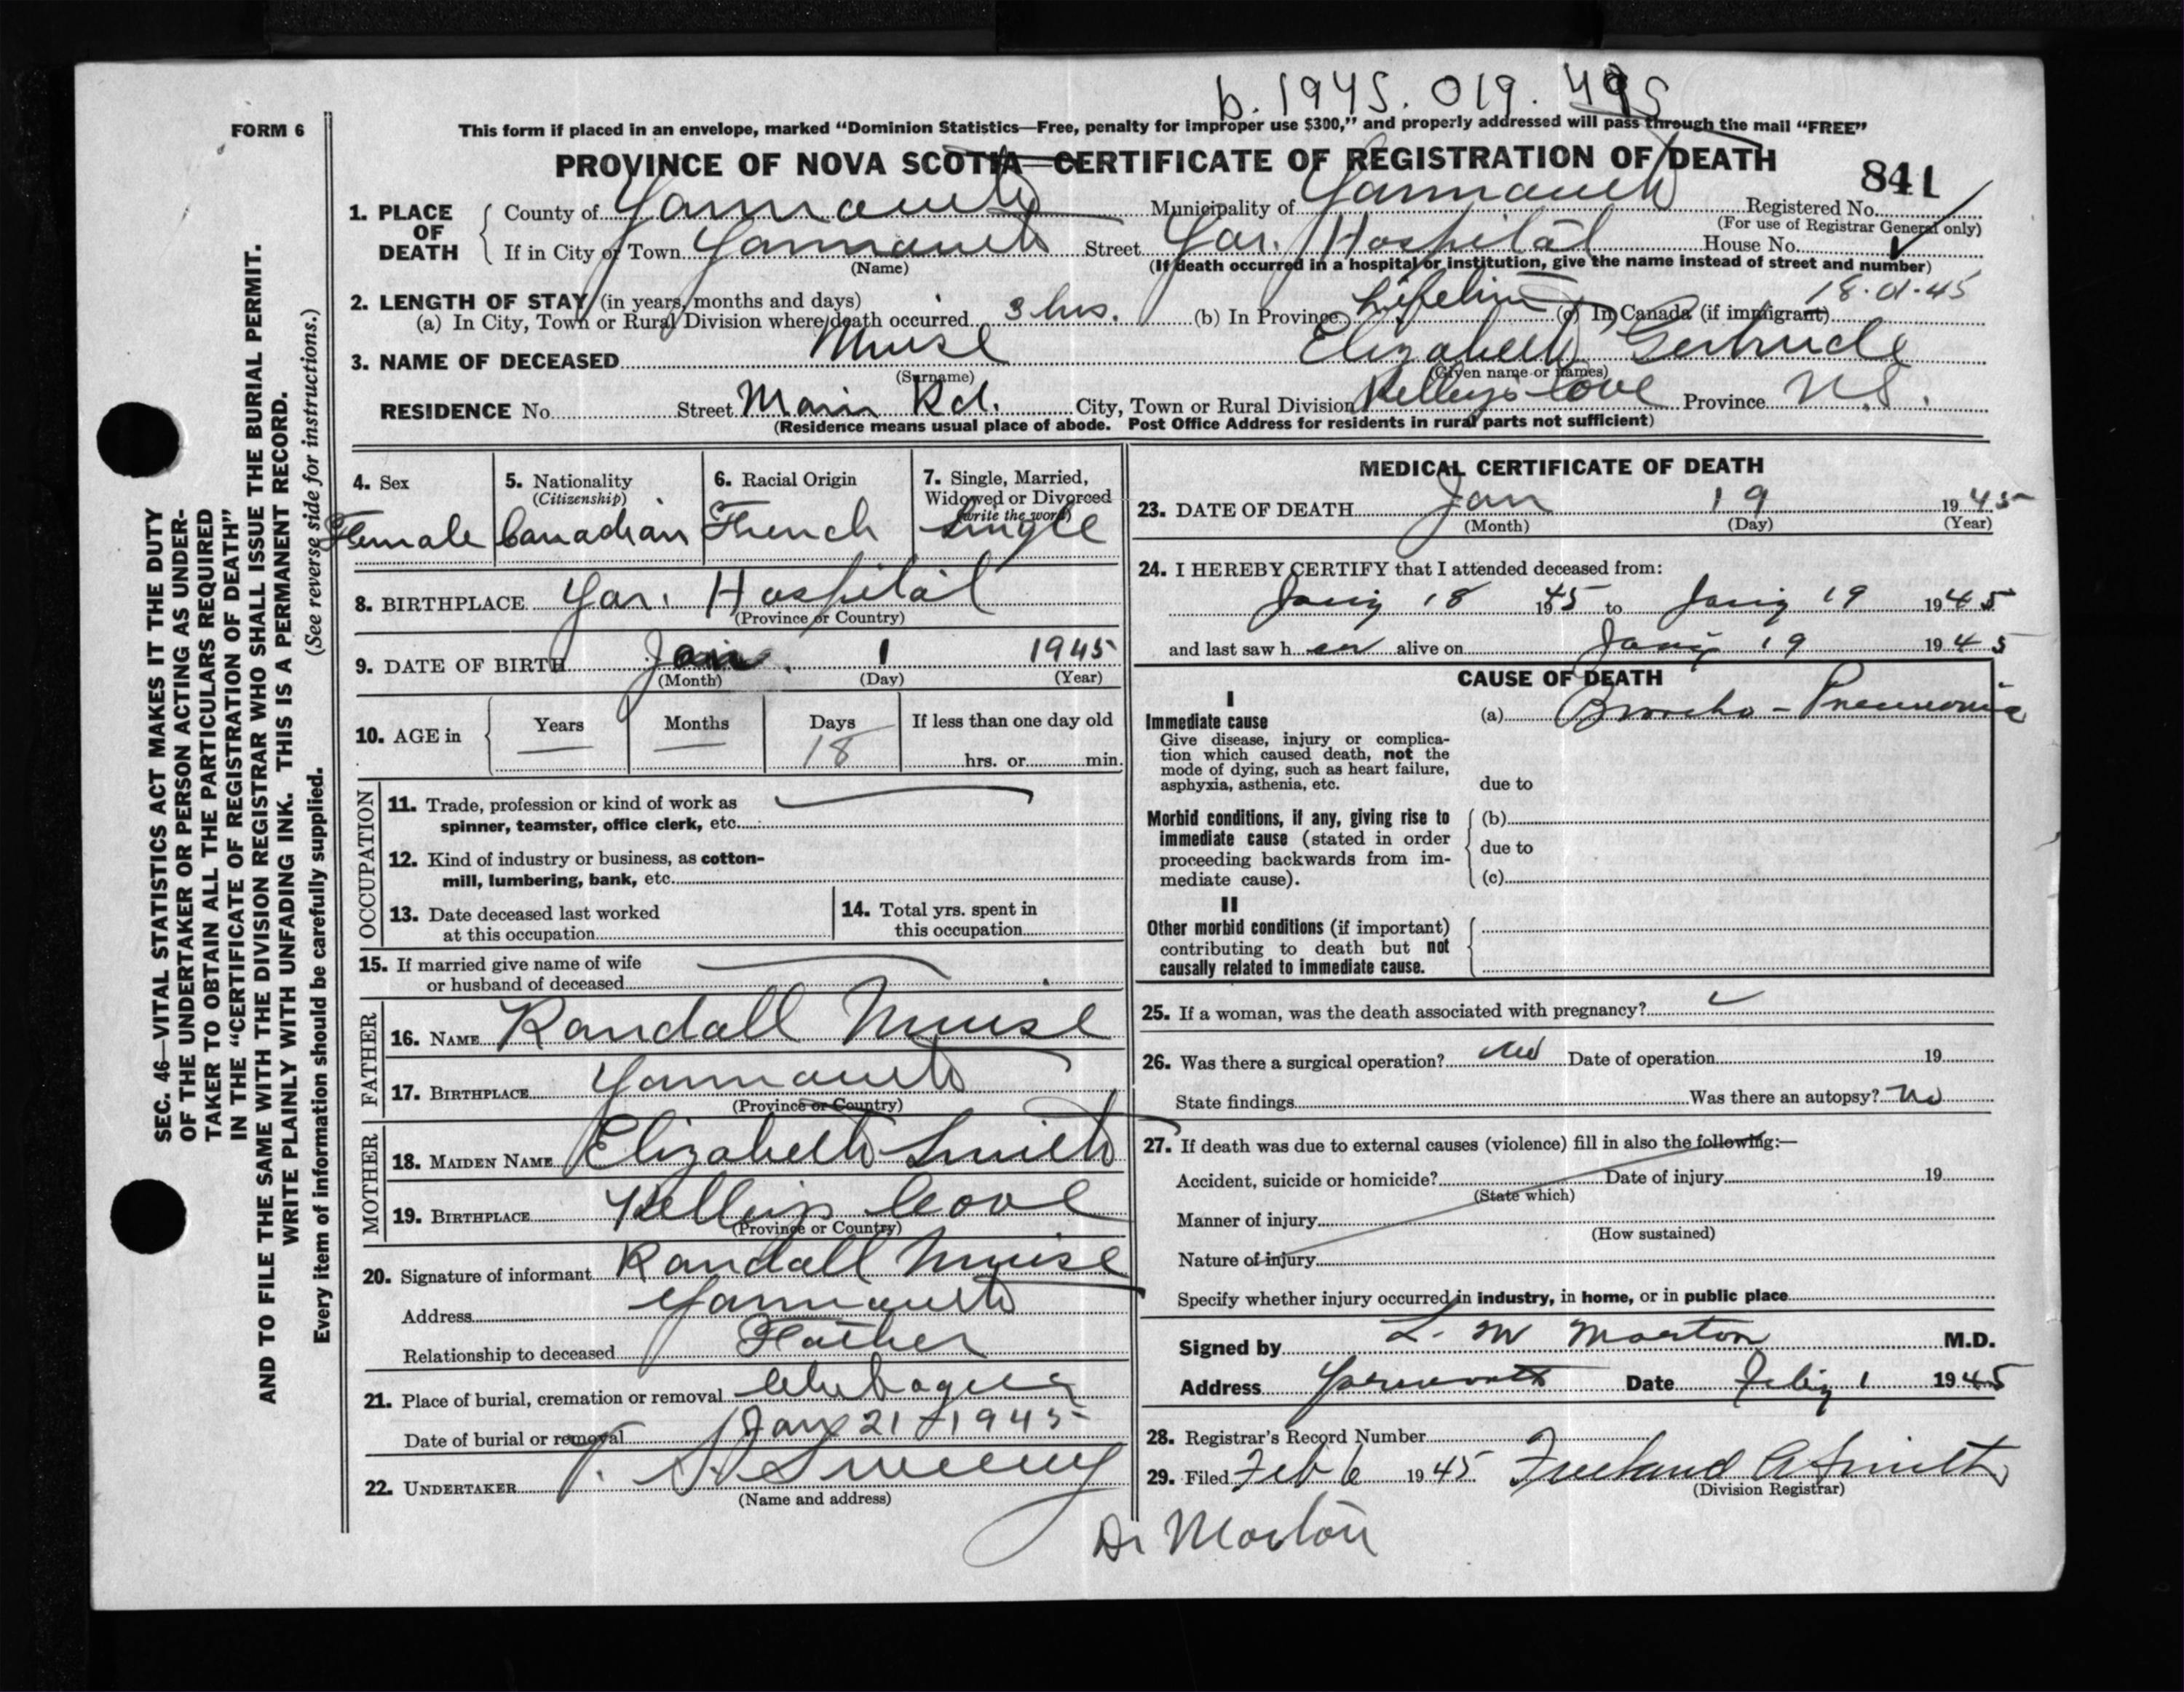 b. 1945. 019. 495
FORM 6
This form if placed in an envelope, marked "Dominion Statistics—Free, penalty for improper use $300," and properly addressed will pass through the mail "FREE"
PROVINCE OF NOVA SCOTIA—CERTIFICATE OF REGISTRATION OF DEATH
841
1. PLACE OF DEATH
County of Yarmouth Municipality of Yarmouth Registered No.
(For use of Registrar General only)
If in City or Town Yarmouth Street Yar. Hospital House No.
(Name)
(If death occurred in a hospital or institution, give the name instead of street and number)
18·01·45
2. LENGTH OF STAY (in years, months and days)
(a) In City, Town or Rural Division where death occurred 3 hrs. (b) In Province Lifetime (c) In Canada (if immigrant)
3. NAME OF DECEASED Muise Elizabeth Gertrude
(Surname) (Given name or names)
RESIDENCE No. Street Main Rd. City, Town or Rural Division Kelley's Cove Province N.S.
(Residence means usual place of abode. Post Office Address for residents in rural parts not sufficient)
4. Sex
Female
5. Nationality
(Citizenship)
Canadian
6. Racial Origin
French
7. Single, Married,
Widowed or Divorced
(write the word)
Single
8. BIRTHPLACE Yar. Hospital
(Province or Country)
9. DATE OF BIRTH Jan. 1 1945
(Month) (Day) (Year)
10. AGE in
Years Months Days If less than one day old
18 hrs. or min.
OCCUPATION
11. Trade, profession or kind of work as
spinner, teamster, office clerk, etc.
12. Kind of industry or business, as cotton-
mill, lumbering, bank, etc.
13. Date deceased last worked
at this occupation
14. Total yrs. spent in
this occupation
15. If married give name of wife
or husband of deceased
FATHER
16. NAME Randall Muise
17. BIRTHPLACE Yarmouth
(Province or Country)
MOTHER
18. MAIDEN NAME Elizabeth Smith
19. BIRTHPLACE Kelleys Cove
(Province or Country)
20. Signature of informant Randall Muise
Address Yarmouth
Relationship to deceased Father
21. Place of burial, cremation or removal
Date of burial or removal Jan 21-1945
22. UNDERTAKER V. S. Sweeny
(Name and address)
MEDICAL CERTIFICATE OF DEATH
23. DATE OF DEATH Jan 19 1945
(Month) (Day) (Year)
24. I HEREBY CERTIFY that I attended deceased from:
Jany 18 1945 to Jany 19 1945
and last saw h er alive on Jany 19 1945
CAUSE OF DEATH
I
Immediate cause
Give disease, injury or complica-
tion which caused death, not the
mode of dying, such as heart failure,
asphyxia, asthenia, etc.
(a) Broncho-Pneumonia
due to
Morbid conditions, if any, giving rise to
immediate cause (stated in order
proceeding backwards from im-
mediate cause).
(b)
due to
(c)
II
Other morbid conditions (if important)
contributing to death but not
causally related to immediate cause.
25. If a woman, was the death associated with pregnancy?
26. Was there a surgical operation? no Date of operation 19
State findings Was there an autopsy? no
27. If death was due to external causes (violence) fill in also the following:—
Accident, suicide or homicide? Date of injury 19
(State which)
Manner of injury
(How sustained)
Nature of injury
Specify whether injury occurred in industry, in home, or in public place
Signed by L. M Morton M.D.
Address Yarmouth Date Feby 1 1945
28. Registrar's Record Number
29. Filed Feb 6 1945 Freeland A Smith
(Division Registrar)
Dr Morton
SEC. 46—VITAL STATISTICS ACT MAKES IT THE DUTY
OF THE UNDERTAKER OR PERSON ACTING AS UNDER-
TAKER TO OBTAIN ALL THE PARTICULARS REQUIRED
IN THE "CERTIFICATE OF REGISTRATION OF DEATH"
AND TO FILE THE SAME WITH THE DIVISION REGISTRAR WHO SHALL ISSUE THE BURIAL PERMIT.
WRITE PLAINLY WITH UNFADING INK. THIS IS A PERMANENT RECORD.
Every item of information should be carefully supplied. (See reverse side for instructions.)